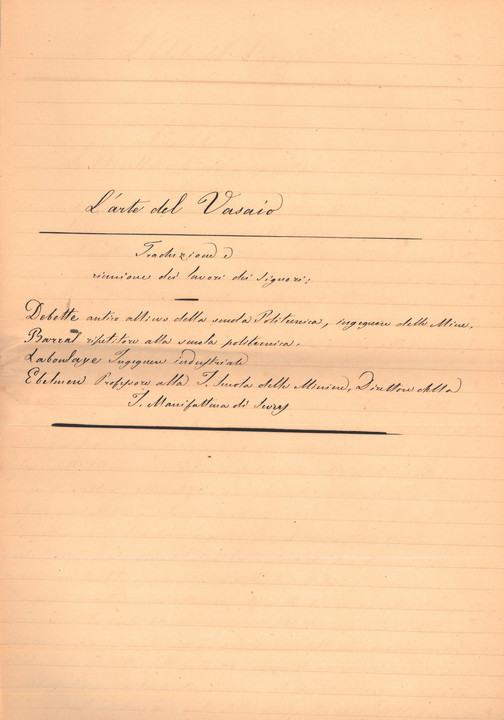 L'arte del Vasaio
Traduzione e
riunione dei lavori dei Signori:
Debette antico allievo della scuola Politecnica, ingegnere delle Mine.
Barral ripetitore alla scuola politecnica.
Laboulaye Ingegnere industriale
Ebelmen Professore alla I. Scuola delle Miniere, Direttore della
I. Manifattura di Sevres